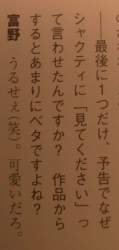 ――最後に1つだけ、予告でなぜ
シャクティに「見てください」っ
て言わせたんですか？　作品から
するとあまりにベタですよね？
富野　うるせぇ（笑）。可愛いだろ。